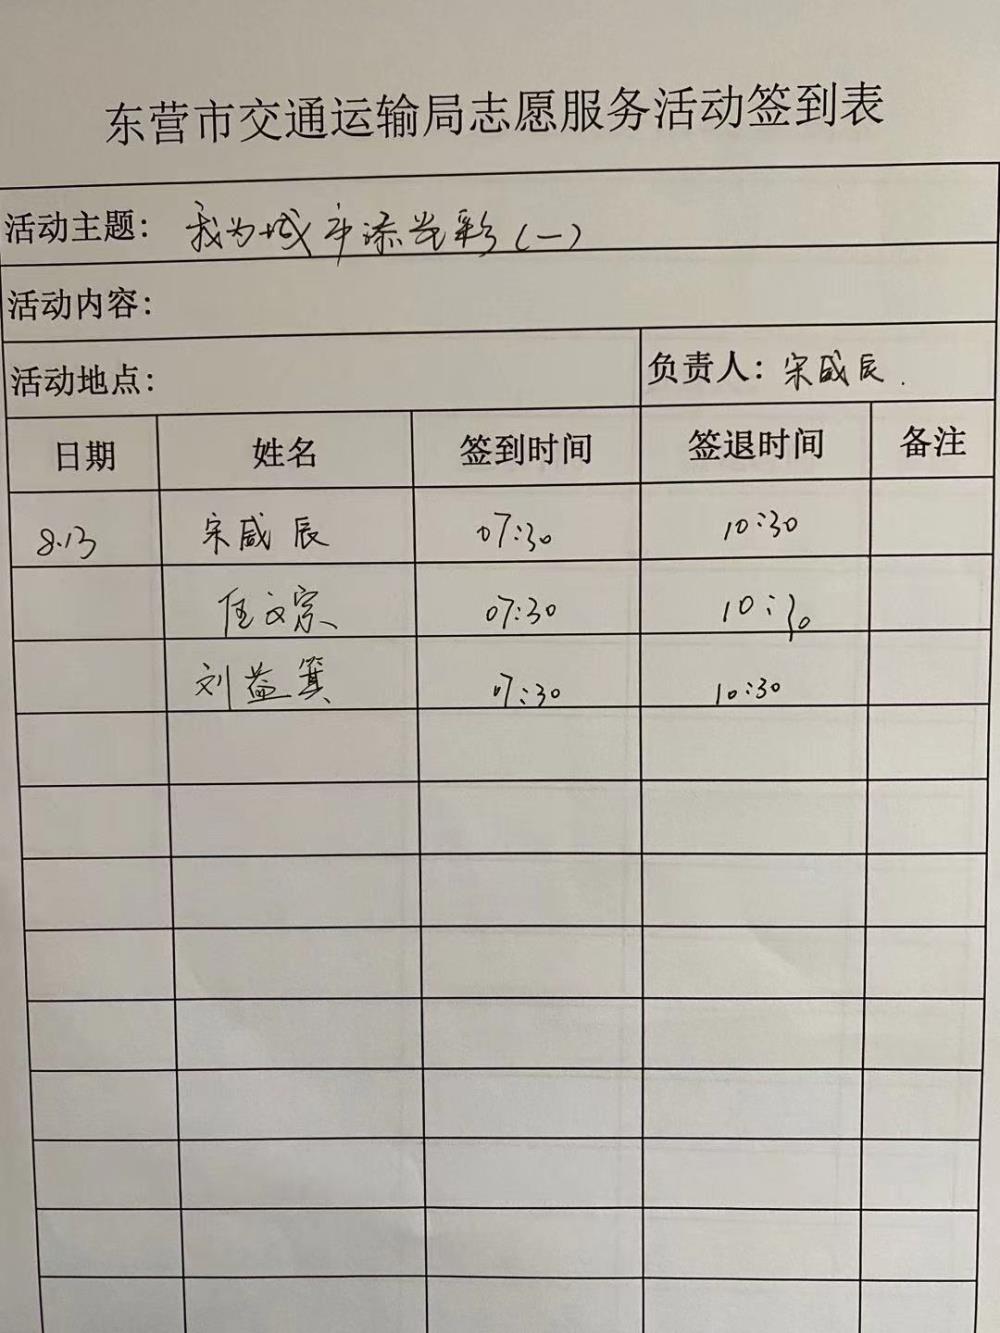 东营市交通运输局志愿服务活动签到表
活动主题: 我为城市添光彩(一)
活动内容:
活动地点: 负责人: 宋威辰.
日期 姓名 签到时间 签退时间 备注
8.13 宋威辰 07:30 10:30
任文宗 07:30 10:30
刘益箕 07:30 10:30